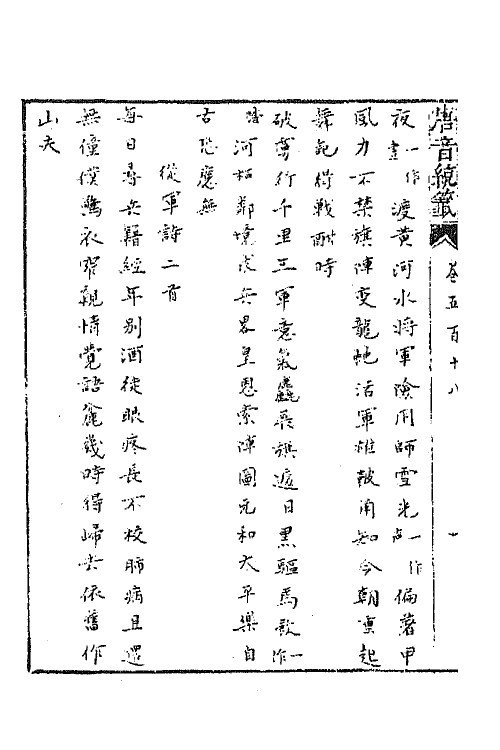 唐音統籤
卷五百十八
夜一作晝渡黃河水將軍險用師雪光一作高偏著甲
風力不禁旗陣變龍蛇活軍雄鼓角知今朝重起
舞記得戰酣時
破虜行千里三軍意氣麤展旗遮日黑驅馬飲一作
踏河枯鄰境求兵畧皇恩索陣圖元和太平樂自
古恐應無
從軍詩二首
每日尋兵籍經年別酒徒眼疼長不校肺病且還
無僮僕驚衣窄親情覺語麤幾時得歸去依舊作
山夫